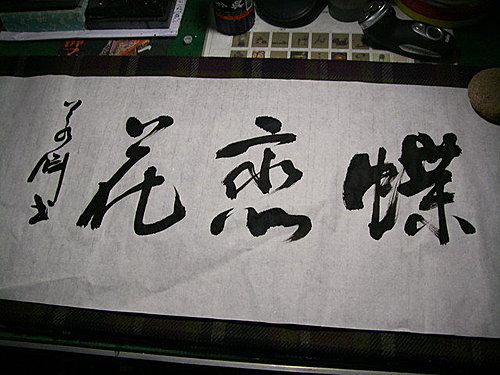 蝶恋花